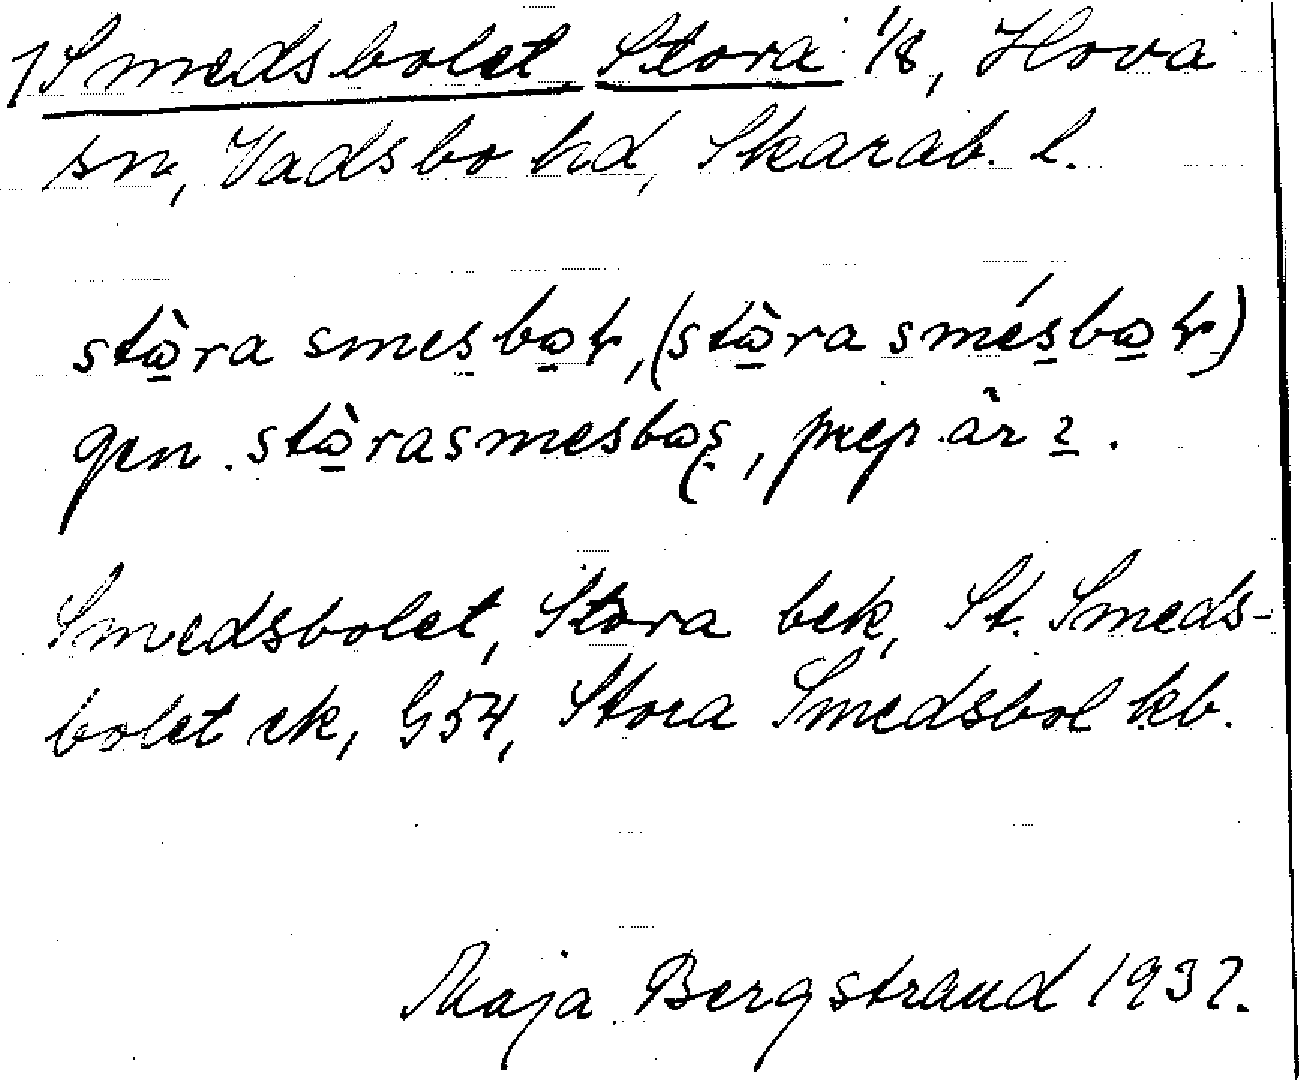 Smedsbolet Stora 1/8, Hova
sn, Vadsbo hd, Skarab. l.
stòra smesboł, (stòra smésboł)
gen. stòrasmesbos, prep àr 2.
Smedsbolet, Stora bek, St. Smeds-
bolet ek, G54, Stora Smedsbol kb.
Maja Bergstrand 1937.